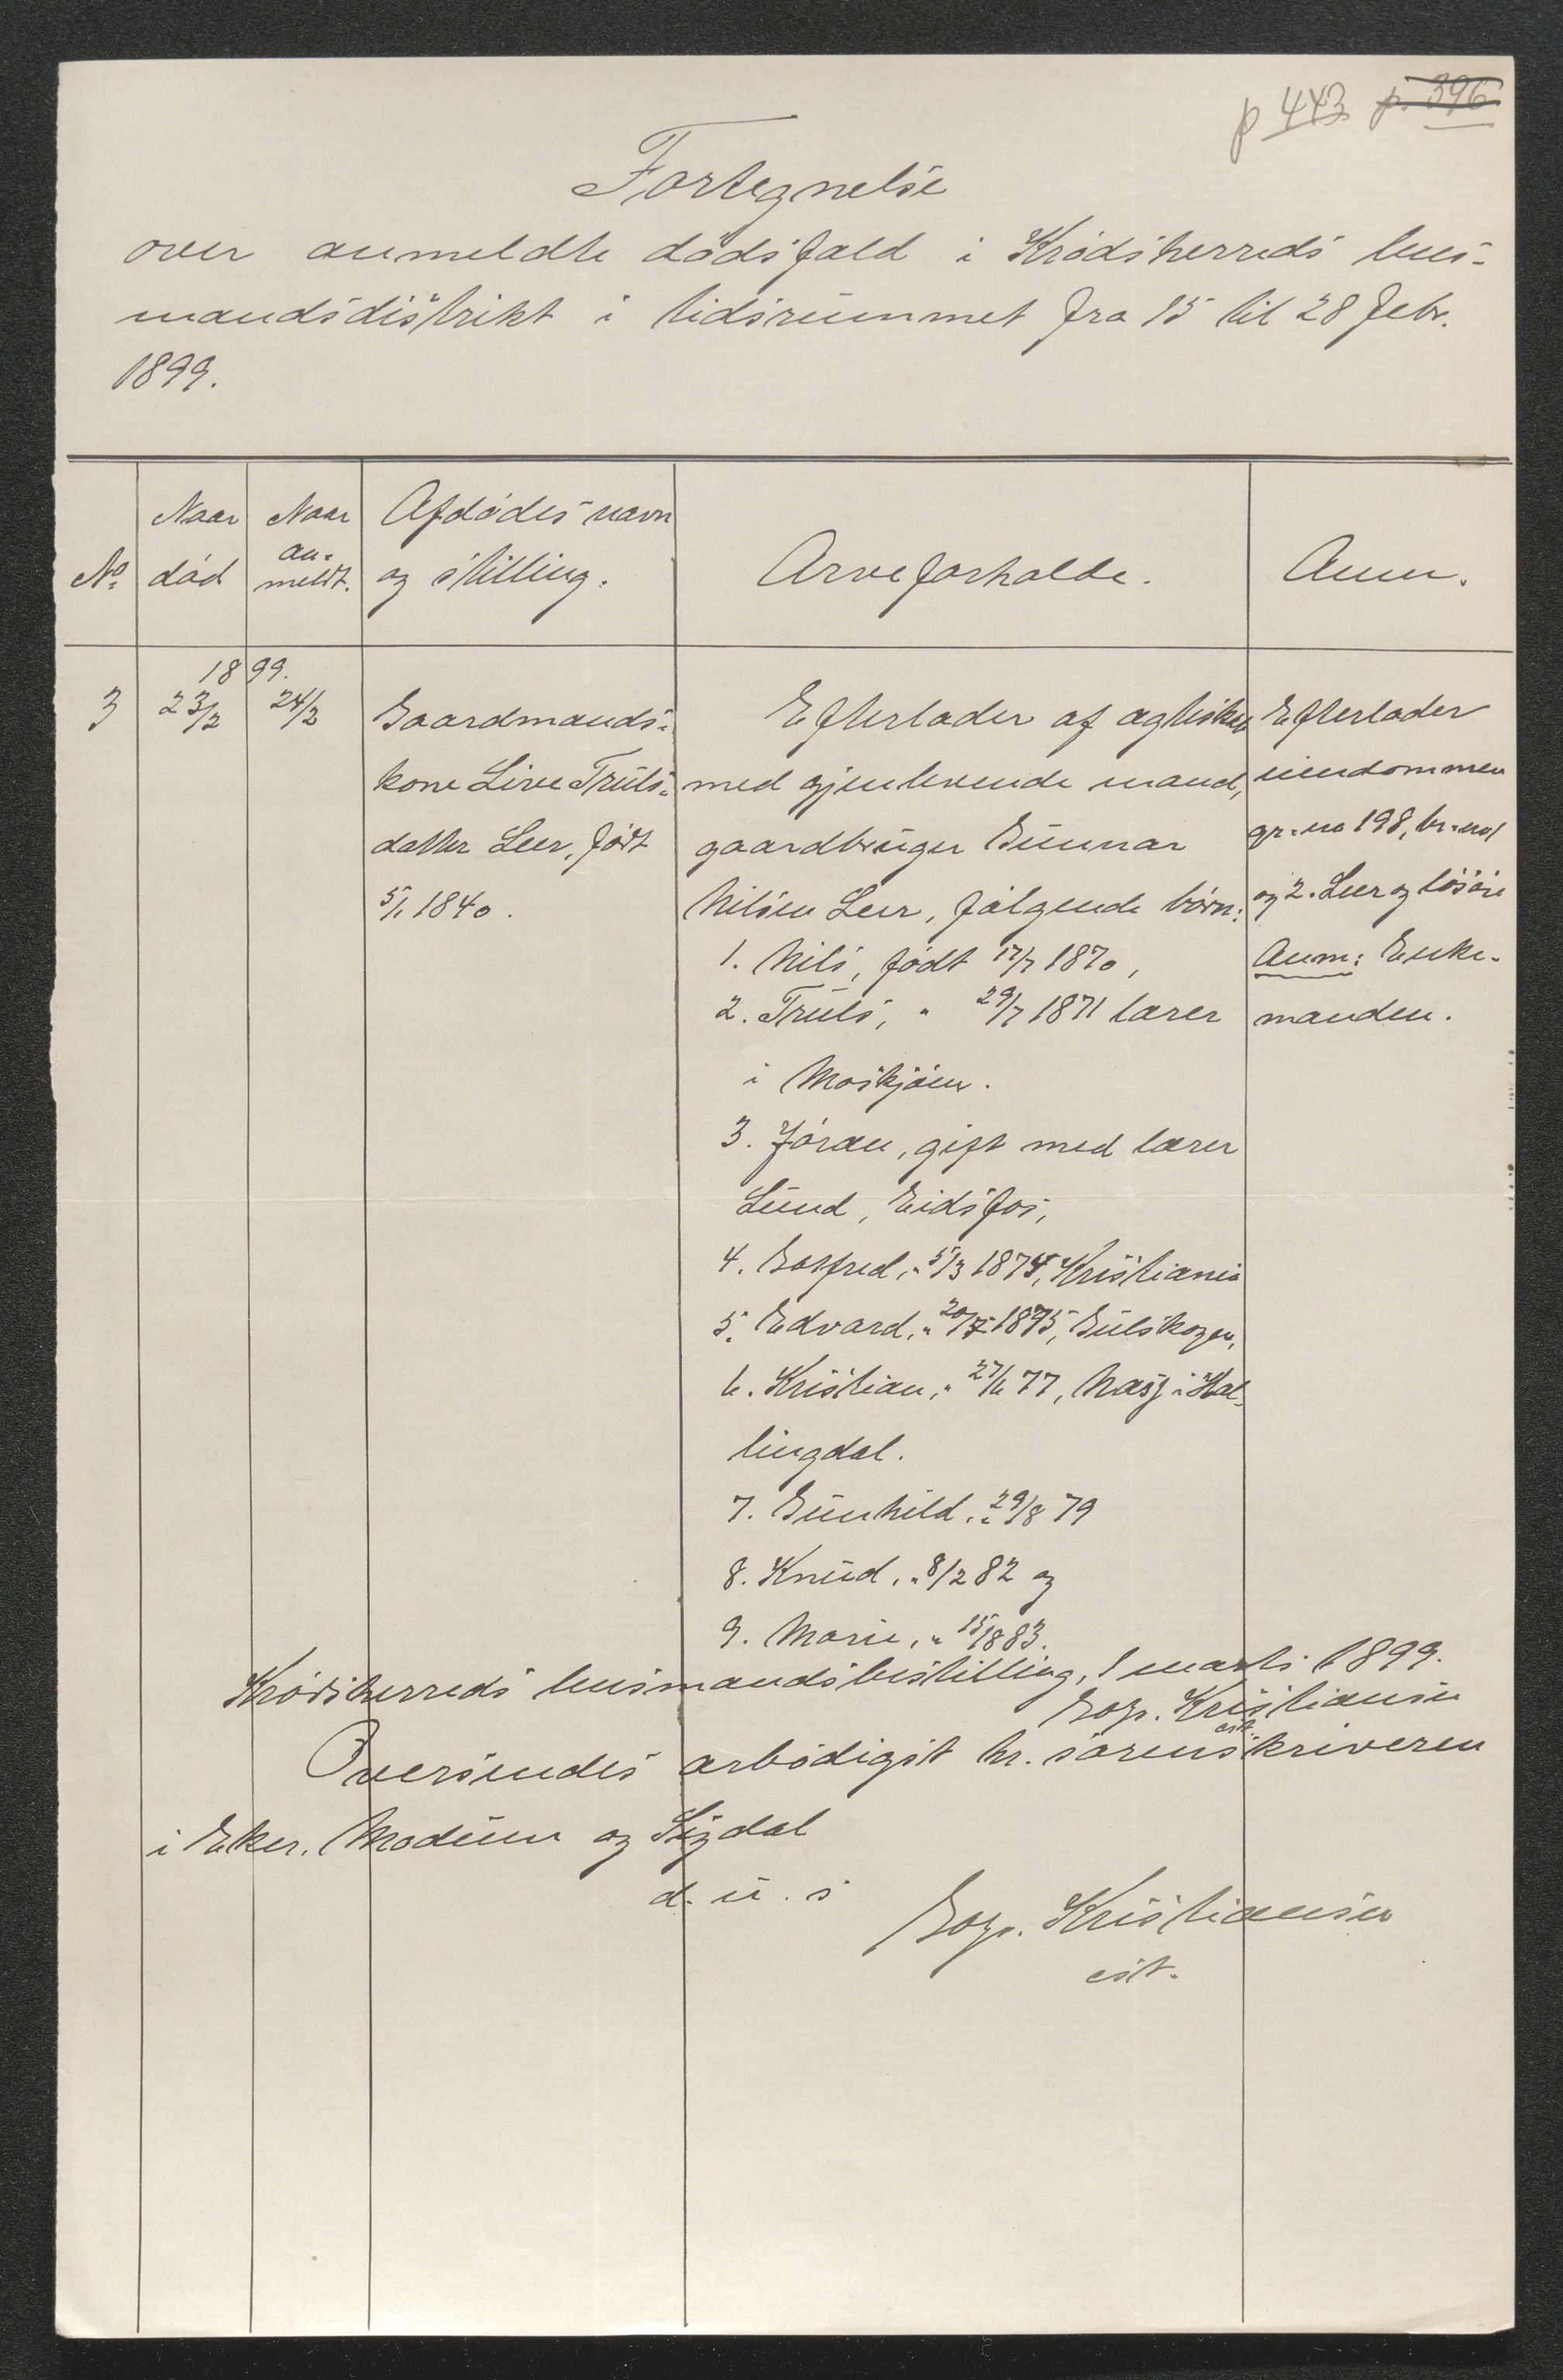 p 443 p. 396
Fortegnelse
over anmeldte dødsfald i Krødsherreds lens-
mandsdistrikt i tidsrummet fra 15 til 28 febr.
1899.
No. | Naar død | Naar an-meldt. | Afdødes navn og stilling. | Arveforholde. | Anm.
1899.
3 23/2 24/2
Gaardmands-
kone Live Truls-
datter Leer, født
5/1 1840.
Efterlader af ægteskab
med gjenlevende mand,
gaardbruger Gunnar
Nilsen Leer, følgende børn:
1. Nils, født 17/7 1870,
2. Truls, " 29/7 1871 lærer
i Mosjøen.
3. Jøran, gift med lærer
Lund, Eidsfos,
4. Gotfred, " 5/3 1874, Kristiania
5. Edvard, " 20/7 1875, Gulskogen,
6. Kristian, " 27/6 77, Næs i Hal-
lingdal.
7. Gunhild, " 29/8 79
8. Knud, " 8/2 82 og
9. Marie, " 15/8 83.
Efterlader
eiendommen
gr-no 198, br-no 1
og 2. Leer og løsøre
Anm: Enke-
manden.
Krødsherreds lensmandsbestilling, 1 marts 1899.
Kristiansen
cst.
Oversendes ærbødigst hr. sorenskriveren
i Eker, Modum og Sigdal
d. u. s
Kristiansen
cst.